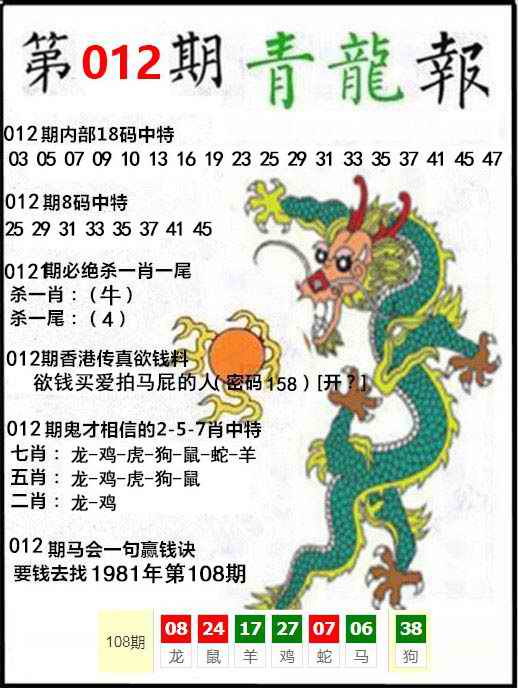 第012期青龍報
012期内部18码中特
03 05 07 09 10 13 16 19 23 25 29 31 33 35 37 41 45 47
012期8码中特
25 29 31 33 35 37 41 45
012期必绝杀一肖一尾
杀一肖：（牛）
杀一尾：（4）
012期香港传真欲钱料
欲钱买爱拍马屁的人（密码158）[开？]
012期鬼才相信的2-5-7肖中特
七肖：龙-鸡-虎-狗-鼠-蛇-羊
五肖：龙-鸡-虎-狗-鼠
二肖：龙-鸡
012期马会一句赢钱诀
要钱去找1981年第108期
108期 08 24 17 27 07 06 38
龙 鼠 羊 鸡 蛇 马 狗